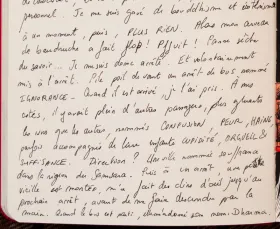 personnel. Je me suis gavé de bouddhisme et
à un moment, puis, PLUS RIEN. Alors mon
de bouddhiste a fait flop! Pfiuit! Panne sèche
du savoir... Je me suis donc arrêté. Et volontairement
mis à l'arrêt. Pile poil devant un arrêt de bus nommé
IGNORANCE. Quand il est arrivé, je l'ai pris. À mes
côtés, il y avait plein d'autres passagers, plus
les uns que les autres, nommés CONFUSION, PEUR, HAINE
parfois accompagnés de leurs enfants CUPIDITÉ, ORGUEIL &
SUFFISANCE. Direction? Une ville nommée
dans la région du Samsara. Puis à un arrêt une petite
vieille est montée, m'a fait des clins d'oeil jusqu'au
prochain arrêt, avant de me faire descendre par la
main. Quand le bus est parti, elle m'a donné son nom: Dharma.